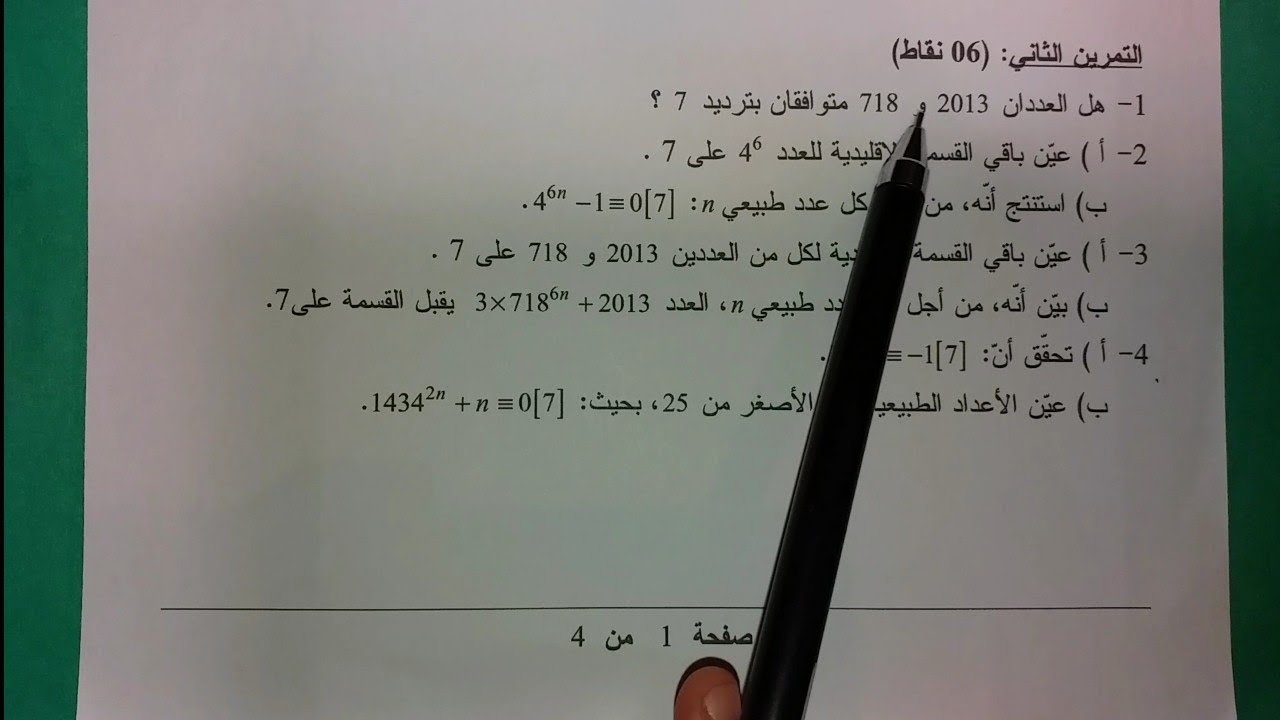 التمرين الثاني: (06 نقاط)
1- هل العددان 2013 و 718 متوافقان بترديد 7 ؟
2- أ ) عيّن باقي القسمة لاقليدية للعدد 4⁶ على 7 .
ب) استنتج أنّه، من كل عدد طبيعي n: 4⁶ⁿ −1≡0[7] .
3- أ ) عيّن باقي القسمة لكل من العددين 2013 و 718 على 7 .
ب) بيّن أنّه، من أجل طبيعي n، العدد 3×718⁶ⁿ +2013 يقبل القسمة على 7.
4- أ ) تحقّق أنّ: ≡−1[7] .
ب) عيّن الأعداد الطبيعية الأصغر من 25، بحيث: 1434²ⁿ +n≡0[7] .
صفحة 1 من 4